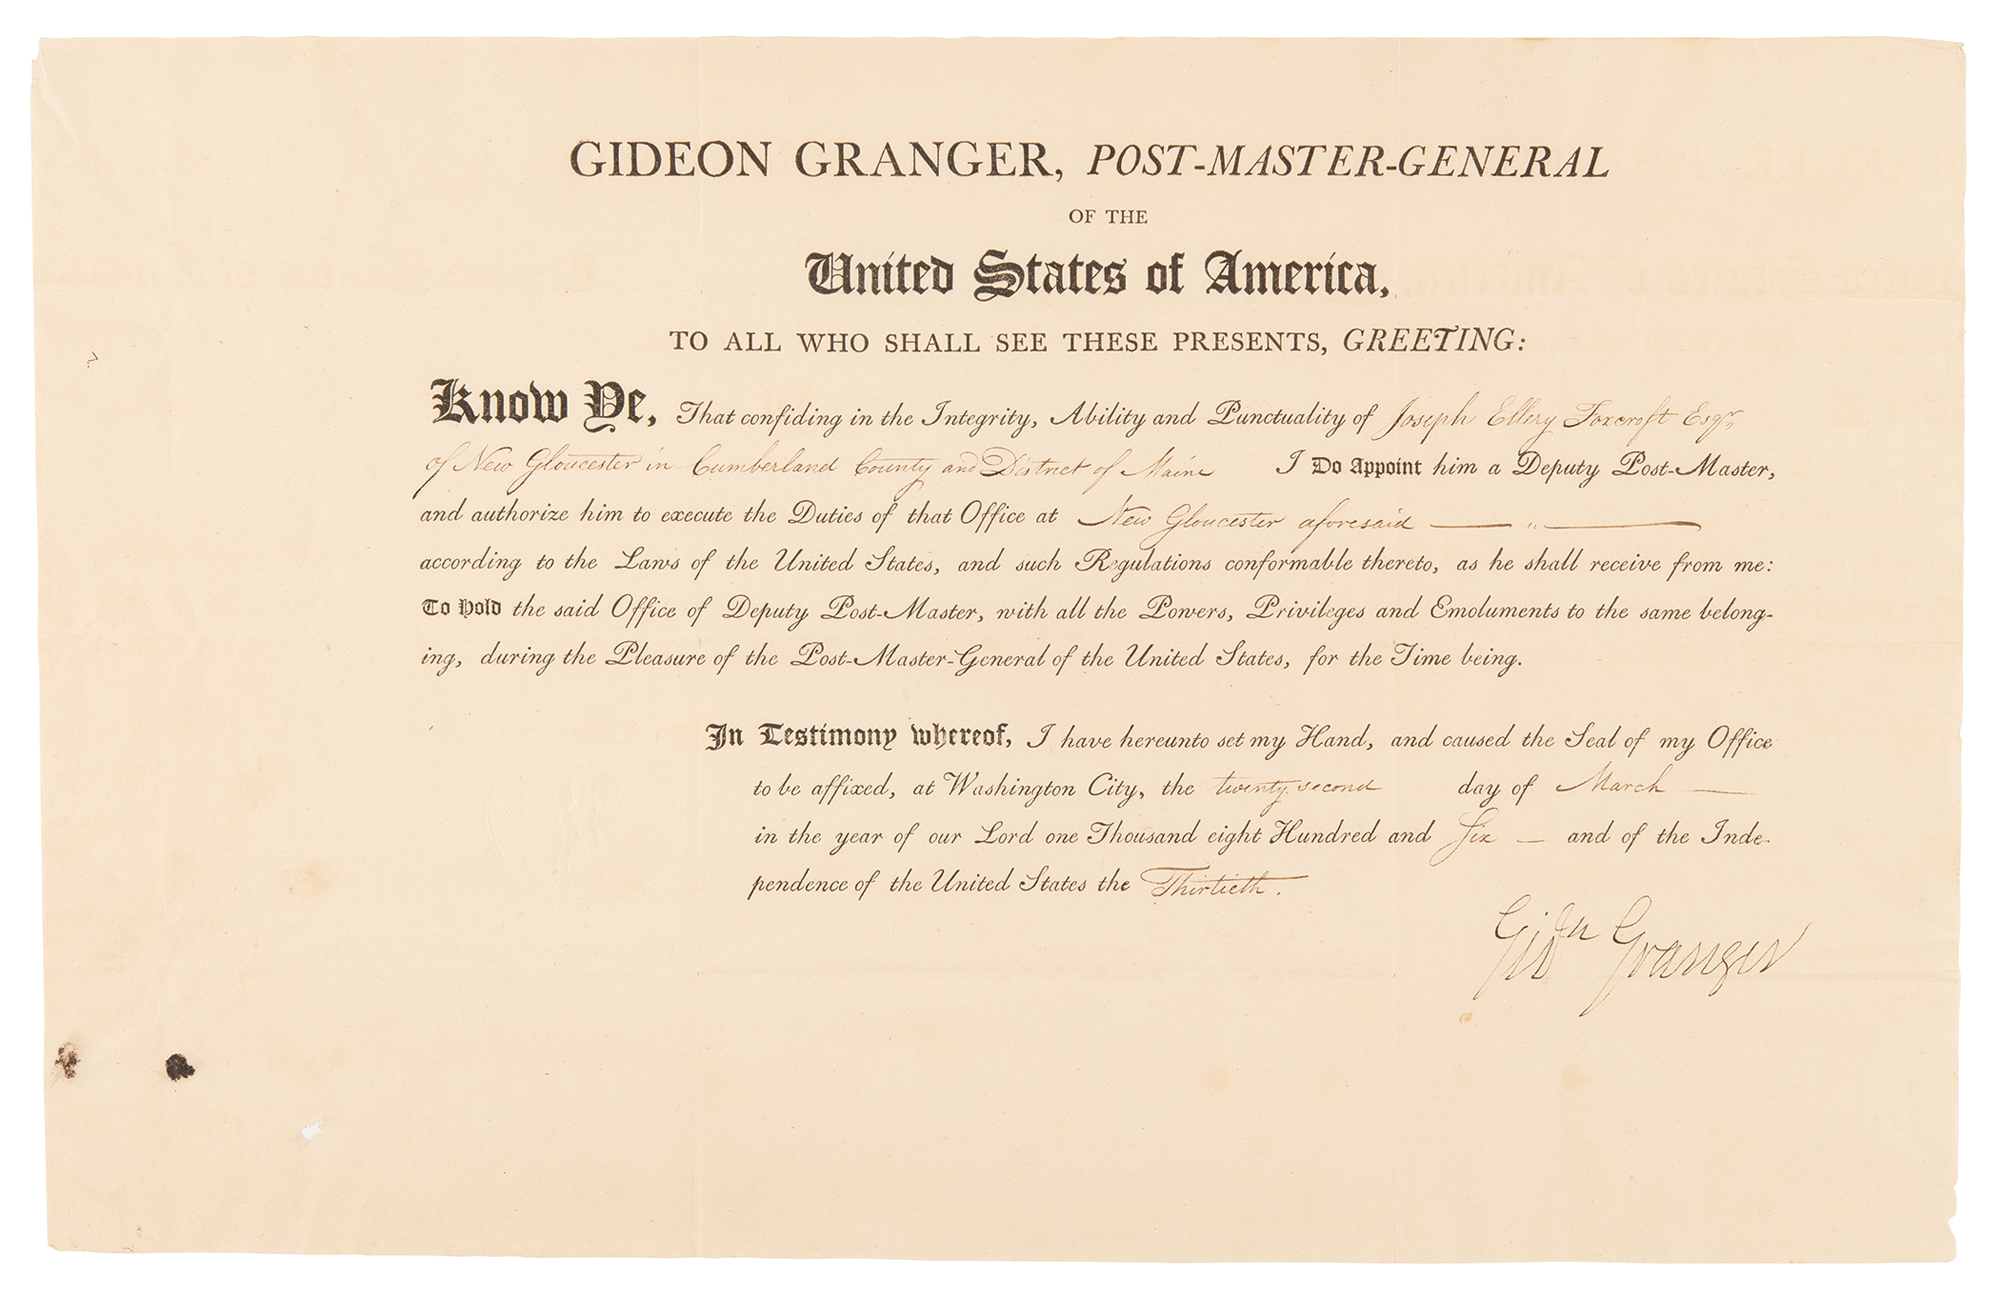 GIDEON GRANGER, POST-MASTER-GENERAL
OF THE
United States of America,
TO ALL WHO SHALL SEE THESE PRESENTS, GREETING:
Know Ye, That confiding in the Integrity, Ability and Punctuality of Joseph Ellery Foxcroft Esqr.
of New Gloucester in Cumberland County and District of Maine I Do Appoint him a Deputy Post-Master,
and authorize him to execute the Duties of that Office at New Gloucester aforesaid — " —
according to the Laws of the United States, and such Regulations conformable thereto, as he shall receive from me:
To Hold the said Office of Deputy Post-Master, with all the Powers, Privileges and Emoluments to the same belong-
ing, during the Pleasure of the Post-Master-General of the United States, for the Time being.
In Testimony whereof, I have hereunto set my Hand, and caused the Seal of my Office
to be affixed, at Washington City, the twenty second day of March —
in the year of our Lord one Thousand eight Hundred and Six — and of the Inde-
pendence of the United States the Thirtieth.
Gidn Granger